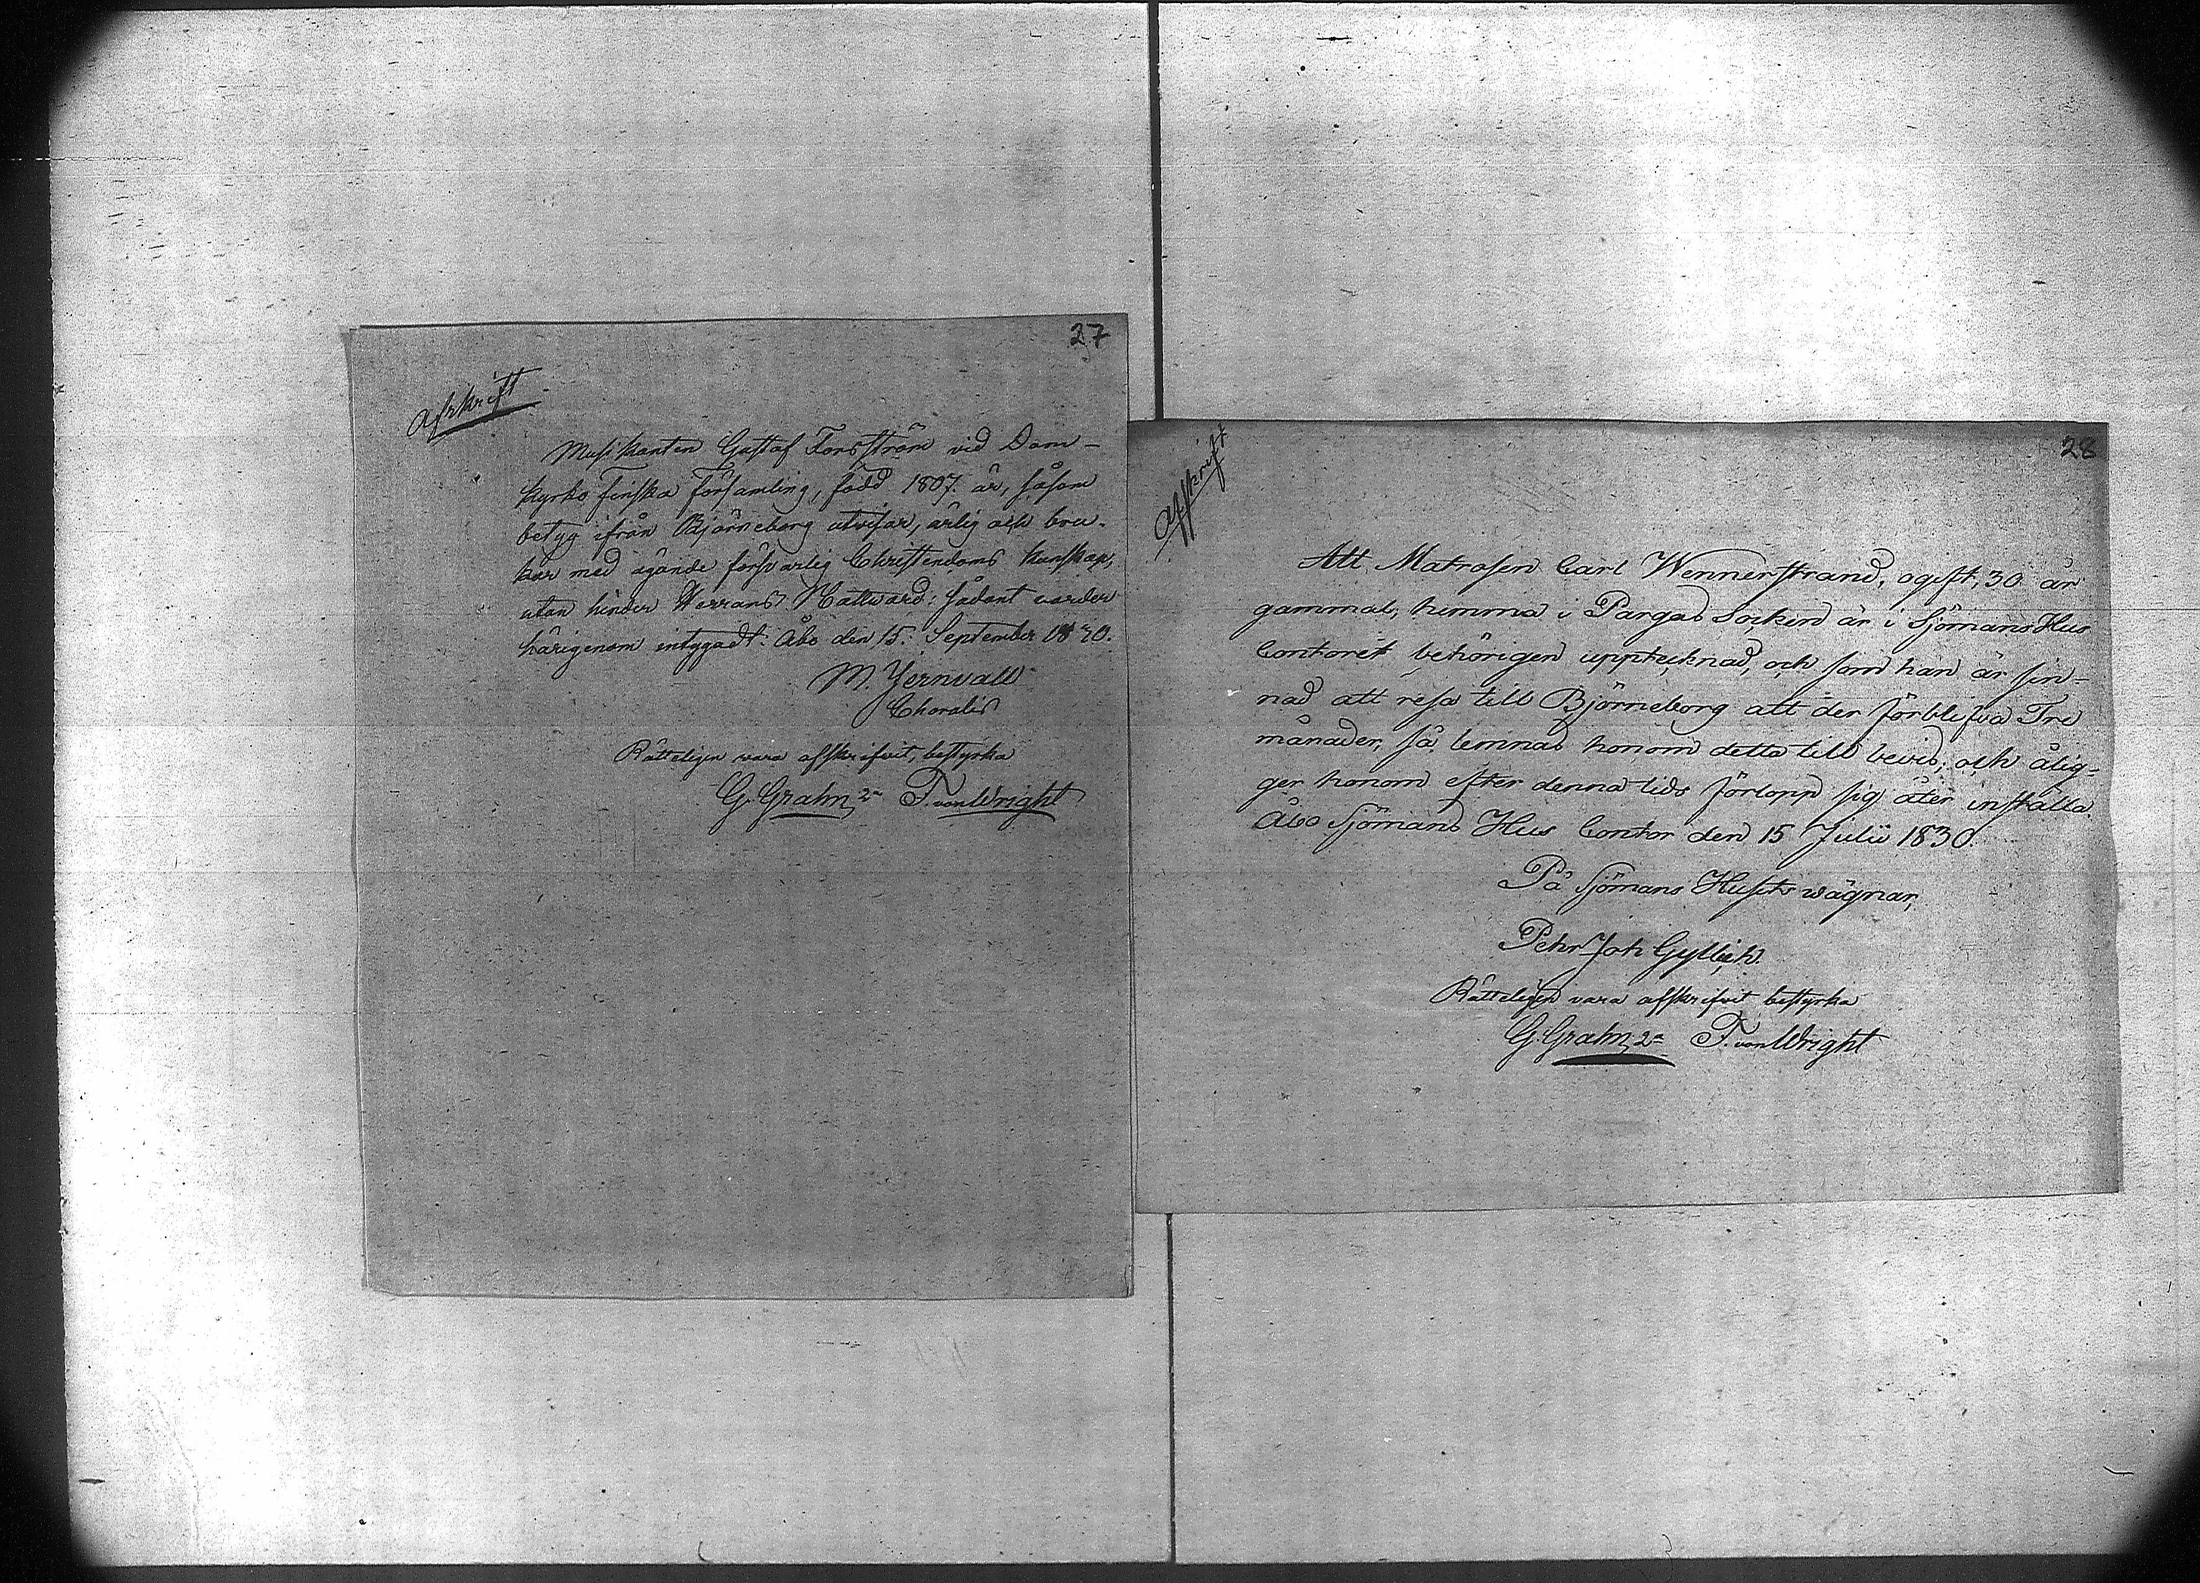 27
Afskrift
Musikanten Gustaf Forsström vid Dom-
kyrko Finska Församling, född 1807. är, såsom
betyg ifrån Björneborg utvisar, ärlig och bru-
kar med ägande försvarlig Christendoms kunskap,
utan hinder Herrans Nattward: sådant warder
härigenom intygadt. Åbo den 15. September 1830.
M. Jernvall
Choralis
Rätteligen vara afskrifvit, bestyrka
G. Grahn 2n T. von Wright
28
Afskrift
Att Matrosen Carl Wennerstrand, ogift, 30 år
gammal, hemma i Pargas Sockin är i Sjömans Hus
Contoret behörigen upptecknad, och som han är sin-
nad att resa till Björneborg att der förblifva Tre
månader, så lemnas honom detta till bevis; och ålig-
ger honom efter denna tids förlopp sig åter inställa.
Åbo Sjömans Hus Contor den 15 Julii 1830.
På Sjömans Husets wägnar,
Pehr Joh Gyllich.
Rätteligen vara afskrifvit bestyrka
G. Grahn 2n T. von Wright